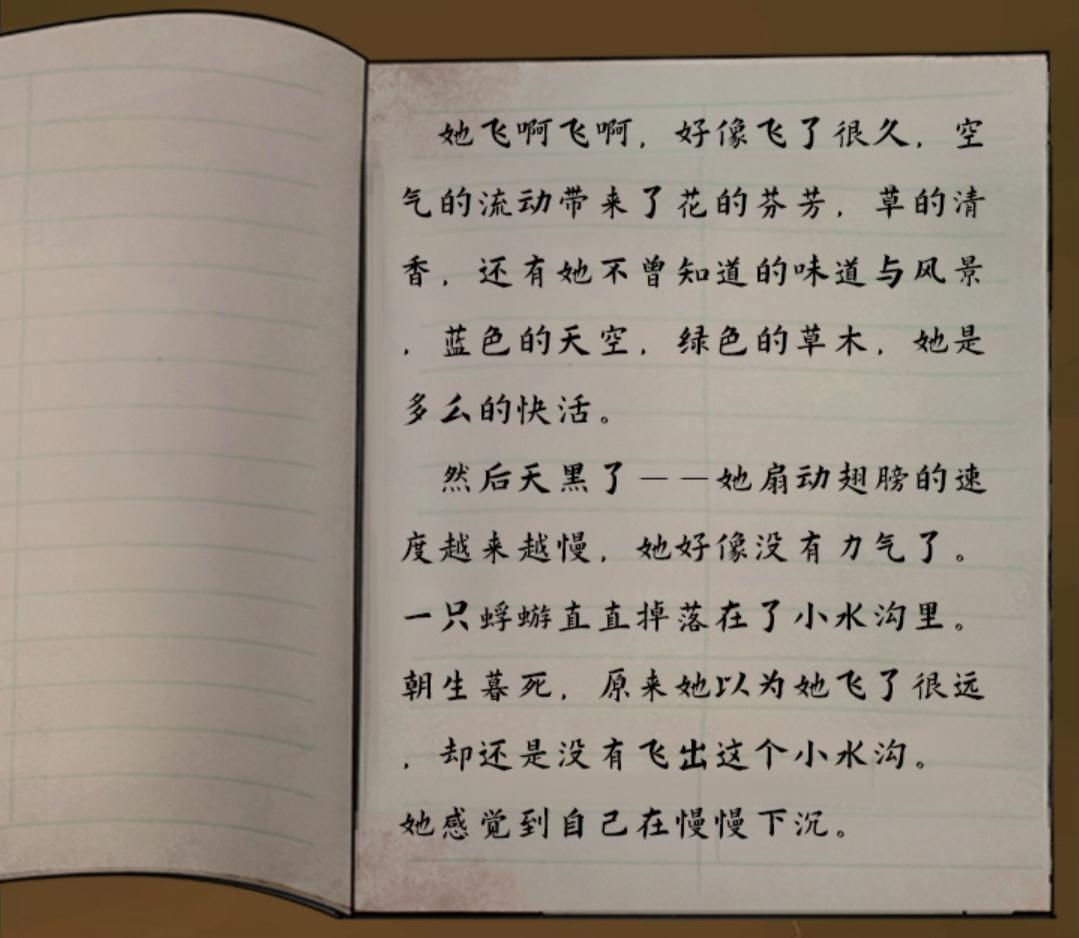 她飞啊飞啊，好像飞了很久，空
气的流动带来了花的芬芳，草的清
香，还有她不曾知道的味道与风景
，蓝色的天空，绿色的草木，她是
多么的快活。
然后天黑了——她扇动翅膀的速
度越来越慢，她好像没有力气了。
一只蜉蝣直直掉落在了小水沟里。
朝生暮死，原来她以为她飞了很远
，却还是没有飞出这个小水沟。
她感觉到自己在慢慢下沉。